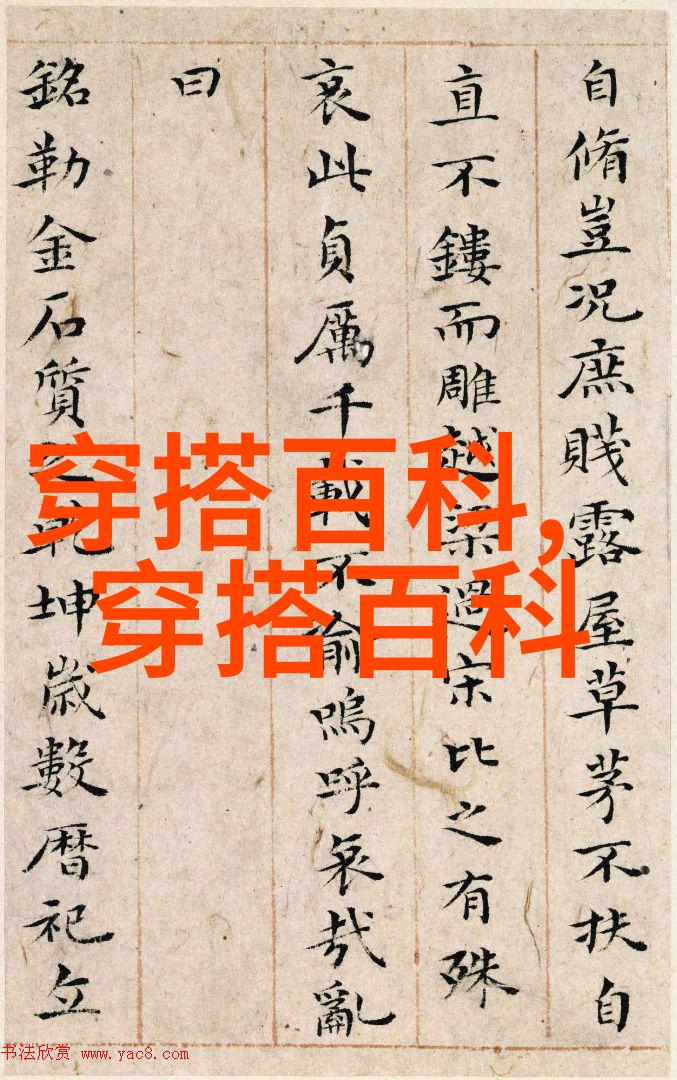 自脩豈况庶賤露屋草茅不扶自
直不鏤而雕越梁過宋比之有殊
哀此貞厲千載不渝嗚呼哀哉亂
曰
銘勒金石質之乾坤歲數曆祀立
穿搭百科,
穿搭百科
书法欣赏 www.yac8.com